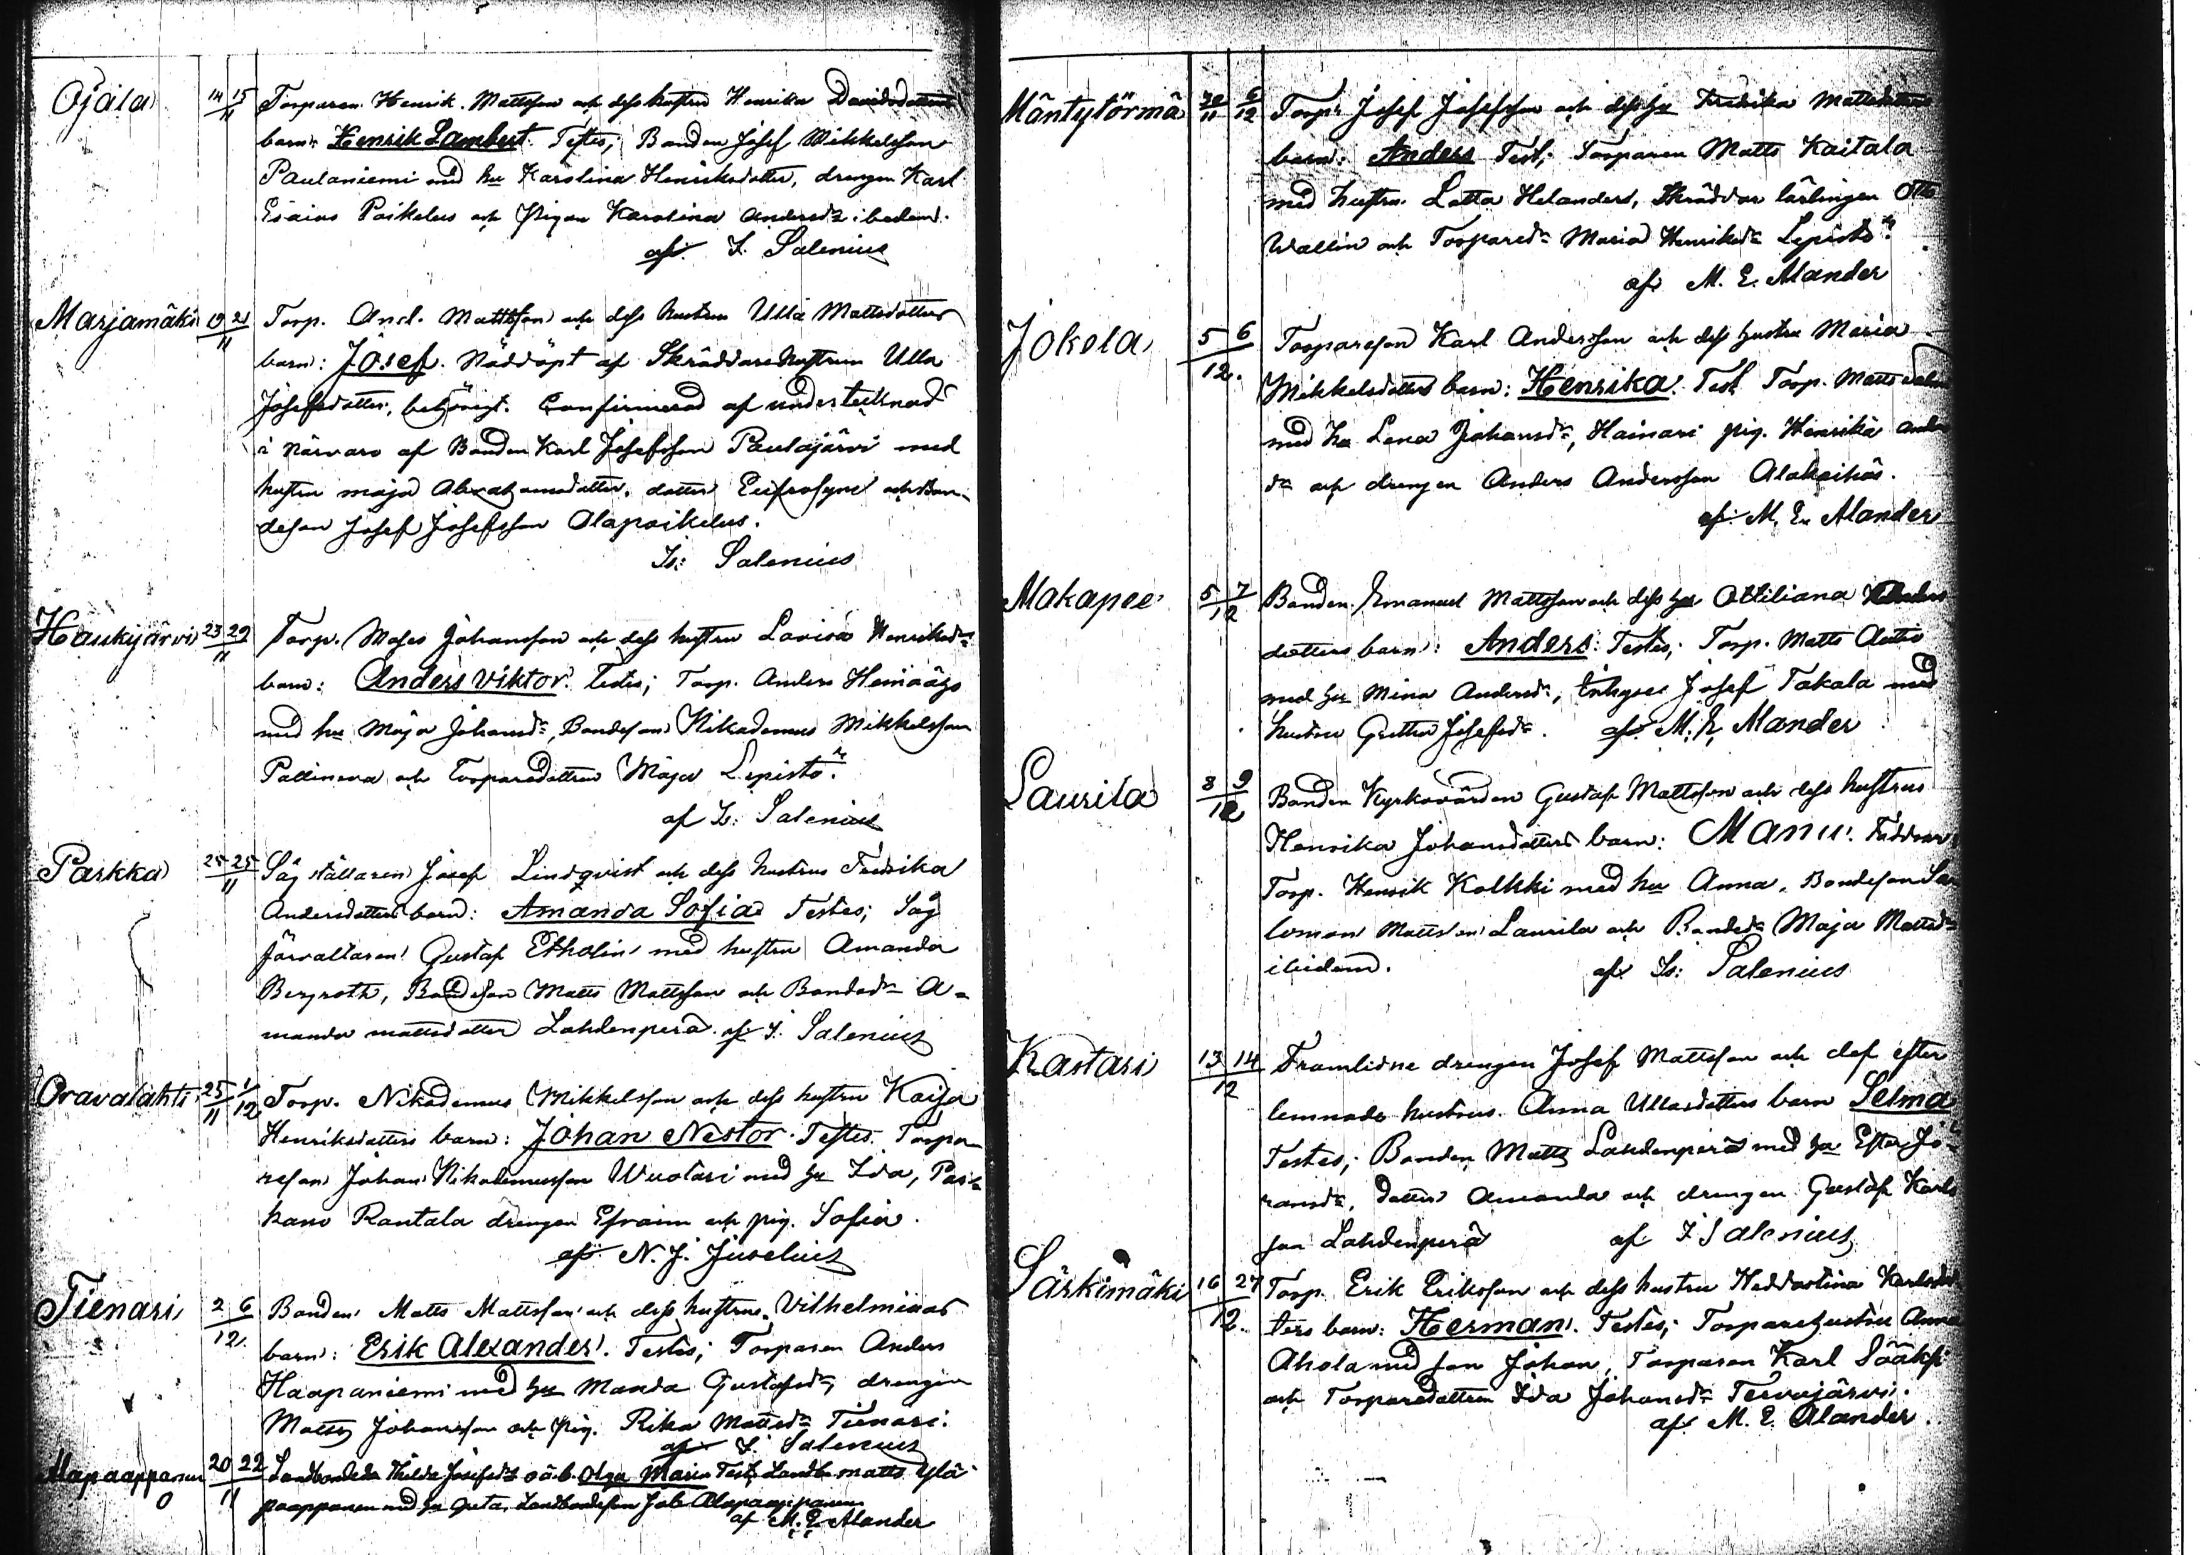 Ojala 14 15/11 Torparen Henrik Mattsson och dess hustru Henrika Davidsdotters
barn: Henrik Lambert. Testes; Bonden Josef Mikkelsson
Paulaniemi med hu Karolina Henriksdotter, drengen Karl
Esaias Poikelus och Pigan Karolina Andersdr ibedem.
af I. Salenius
Marjamäki 19 21/11 Torp. And. Mattsson och dess hustrus Ulla Mattsdotters
barn: Josef. Nöddöpt af Skräddarehustrun Ulla
Josefsdotter, behörigt. Confirmerad af undertecknad
i närvaro af Bonden Karl Josefsson Paulajärvi med
hustru Maja dotter Eufrosyne och Bon-
deson Josef Josefsson Alapoikelus.
Is: Salenius
Haukijärvi 23 29/11 Torp. Moses Johansson och dess hustru Lovisa Henriksdrs
barn: Anders Viktor. Testes; Torp. Anders
med hu Maja Johansdr, Bondeson Nikademus Mikkelsson
och Torparedottren Maja Lepistö.
af Is: Salenius
Parkka 25 25/11 Såg ställaren Josef Lindqvist och dess hustrus Fredrika
Andersdotters barn: Amanda Sofia Testes; Såg
förvaltaren Gustaf Etholin med hustru Amanda
Bergroth, Bondeson Matts Mattsson och Bondedr A-
manda Mattsdotter Lahdenperä. af I. Salenius
Oravalahti 25/11 1/12 Torp. Nikademus Mikkelsson och dess hustru Kaisa
Henriksdotters barn: Johan Nestor. Testes. Torpa-
reson Johan Nikodemusson Wuotari med hu Ida, Par-
kano Rantala drengen Efraim och pig. Sofia.
af N. J. Juselius
Tienari 2 6/12. Bonden Matts Mattsson och dess hustrus Vilhelminas
barn: Erik Alexander. Testes; Torparen Anders
Haapaniemi med hu Manda Gustafsdr, drengen
Matts Johansson och pig. Rika Mattsdr Tienari.
af I. Salenius
Alapaappanen 20 22/11 Landbondedr Hilda Josefsdrs o ä. b. Olga Maria Test. Landb. Matts Ylä
0 paappanen med hu Greta, Landbondeson Job Alapaappanen
af M. E. Alander
Mäntytörmä 30/11 6/12 Torpr Josef Josefsson och dess hu Fredrika Mattsdotters
barn: Anders Test; Torparen Matts Kaitala
med hustru Lotta Helander, Skräddar lärlingen Otto
Wallin och Torparedr Maria Henriksdr Lepistö.
af M. E. Alander
Jokela 5 6/12. Torpareson Karl Andersson och dess hustru Maria
Mikkelsdotters barn: Henrika. Test Torp. Matts
med hu Lena Johansdr, Hainari pig. Henrika Anders
dr och drengen Anders Andersson Alakaihas.
af M. E. Alander
Makapee 5 7/12 Bonden Emanuel Mattsson och dess hu Ottiliana
dotters barn: Anders. Testes; Torp. Matts Autio
med hu Mina Andersdr, Josef Takala med
hustru Gretha Josefsdr. af M. E. Alander
Laurila 8 9/12 Bonden Kyrkovärden Gustaf Mattsson och dess hustrus
Henrika Johansdotters barn: Manu. Faddrar
Torp. Henrik Kolkki med hu Anna, Bondeson Sa
lomon Mattsson Laurila och Bondedr Maja Mattsdr
ibidem. af Is: Salenius
Kastari 13 14/12 Framlidne drengen Josef Mattsson och dess efter
lemnade hustrus Anna Ullasdotters barn Selma
Testes; Bonden Matts Lahdenperä med hu Ester Jo-
hansdr, dotter Amanda och drengen Gustaf Karls
son Lahdenperä af I Salenius
Särkimäki 16 27/12. Torp. Erik Eriksson och dess hustru Heddastina Karlsdot
ters barn: Herman. Testes; Torparehustru Anna
Ahola med son Johan, Torparen Karl Sääksi
och Torparedottren Ida Johansdr Tervajärvi.
af M. E. Alander.